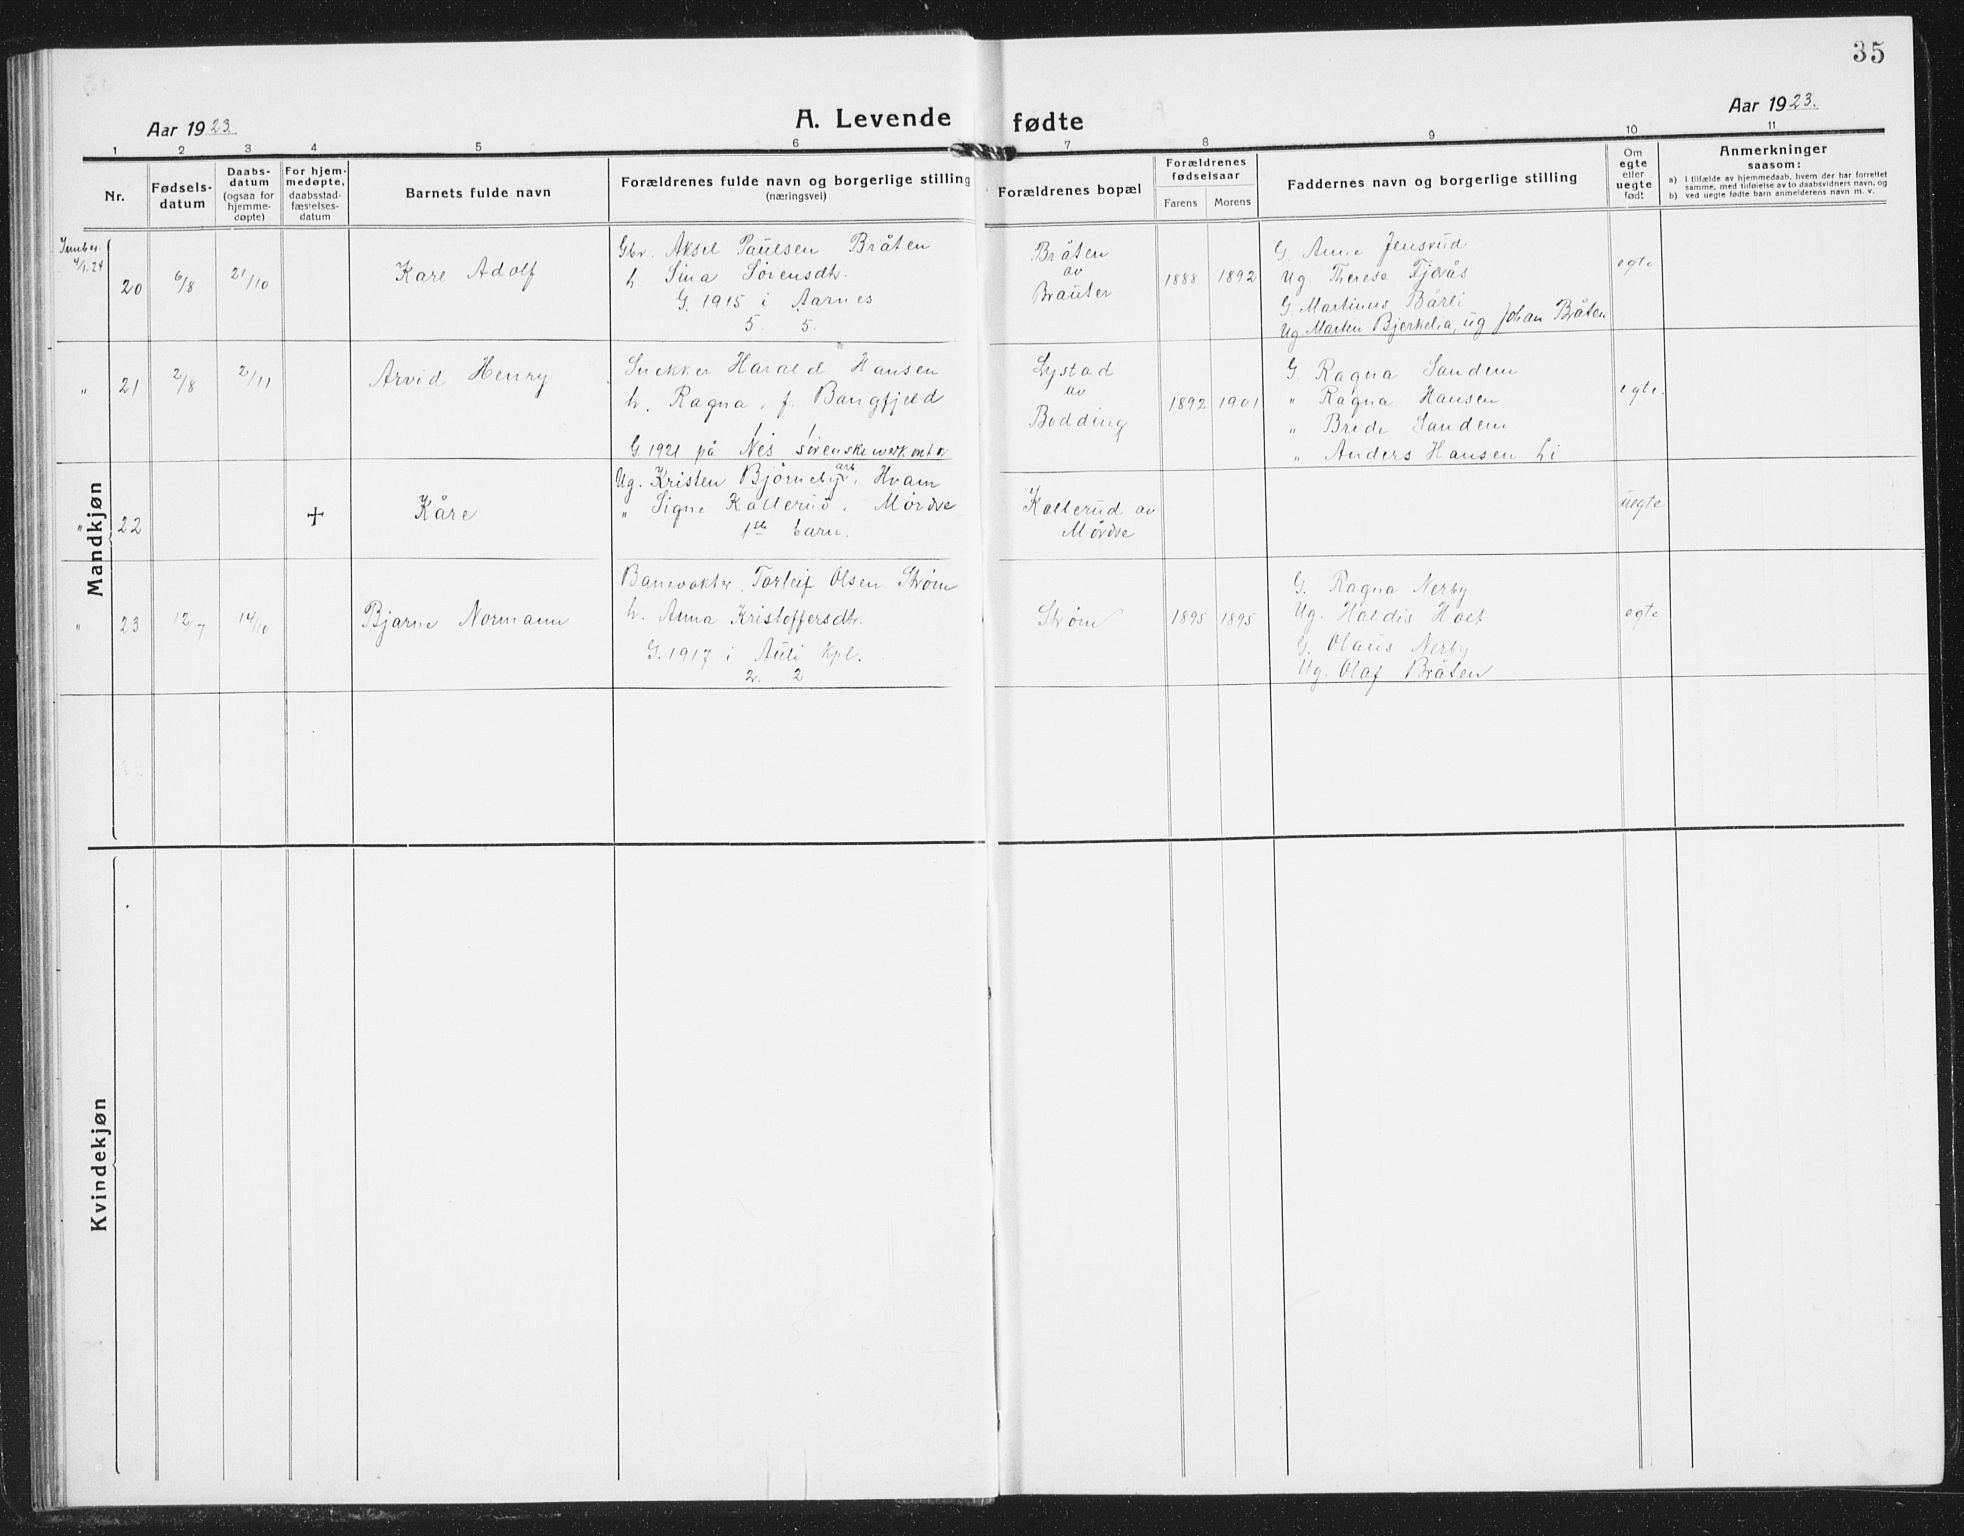 35
Aar 1923.
A. Levende fødte
Aar 1923.
1 2 3 4 5 6 7 8 9 10 11
Nr.
Fødsels-
datum
Daabs-
datum
(ogsaa for
hjemme-
døpte)
For hjem-
medøpte,
daabsstad-
fæstelses-
datum
Barnets fulde navn
Forældrenes fulde navn og borgerlige stilling
(næringsvei)
Forældrenes bopæl
Forældrenes
fødselsaar
Farens Morens
Faddernes navn og borgerlige stilling
Om
egte
eller
uegte
født
Anmerkninger
saasom:
a) I tilfælde av hjemmedaab, hvem der har forrettet
samme, med tilføielse av to daabsvidners navn, og
b) ved uegte fødte barn anmelderens navn m. v.
Mandkjøn
Innber.
4/1.24
20 6/8 21/10
Kåre Adolf
Gbr. Aksel Paulsen Bråten
h. Sina Sørensdtr.
G. 1915 i Aarnes
5. 5.
Bråten
av
Brauter
1888 1892
G. Anne Jensrud
Ug. Therese Fjøsås
G. Martinus Bårli
Ug. Martin Bjerkelia, ug Johan Bråten
egte
" 21 2/8 2/11
Arvid Henry
Snekker Harald Hansen
h. Ragna, f. Bangfjeld
1 1
G 1921 på Nes sørenskriverkontor
Lystad
av
Bodding
1892 1901
G. Ragna Sandem
" Ragna Hansen
" Brede Sandem
" Anders Hansen Li
egte.
" 22 +
Kåre
Ug. Kristen Bjørneby, arb. Hvam
" Signe Kallerud, Mørdre
1ste barn.
Kallerud av
Mørdre
uegte
" 23 12/7 14/10
Bjarne Normann
Banevokter Torleif Olsen Strøm
h. Anna Kristoffersdtr.
G. 1917 i Auli Kpl.
2. 2
Strøm
1895 1895
G. Ragna Nerby
Ug. Haldis Holt
G. Olaus Nerby
Ug. Olaf Bråten
egte
Kvindekjøn